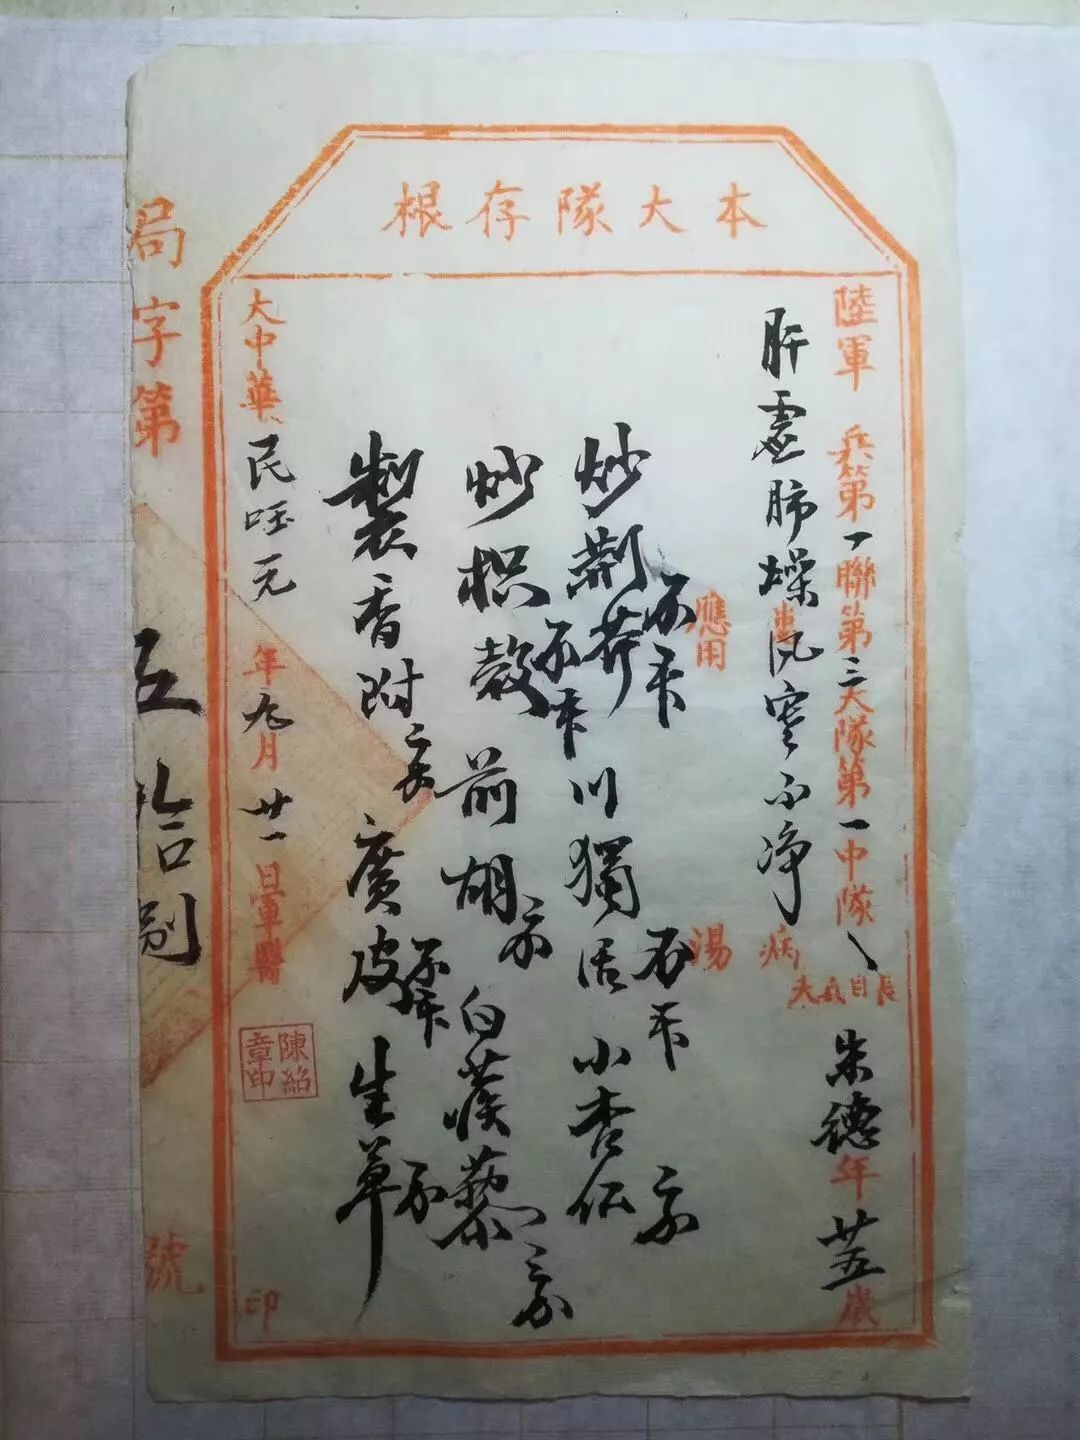 本大隊存根
陸軍 兵第一聯第三大隊第一中隊 長目兵夫 朱德年廿五歲
肝虛肺燥風寒不淨 患 病
應用 湯
炒荊芥 川獨活 小杏仁
炒枳殼 前胡 白蒺藜
製香附 廣皮 生草
大中華民國元年九月廿一日軍醫 印
陳紹章印
局字第五拾捌號